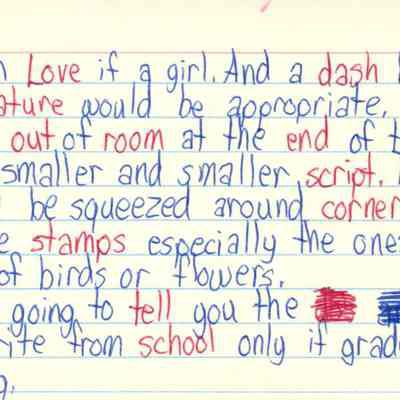 Love if a girl. And a dash
ature would be appropriate.
out of room at the end of t
smaller and smaller script.
be squeezed around corner
e stamps especially the one
of birds or flowers.
going to tell you the
rite from school only if grad
g.